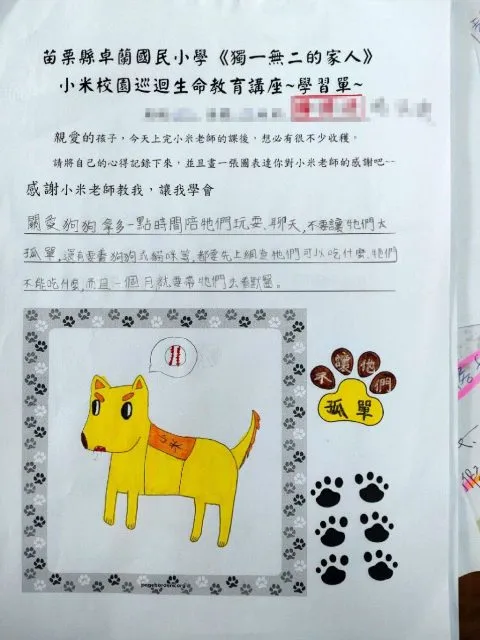 苗栗縣卓蘭國民小學《獨一無二的家人》
小米校園巡迴生命教育講座~學習單~
親愛的孩子，今天上完小米老師的課後，想必有很不少收穫。
請將自己的心得記錄下來，並且畫一張圖表達你對小米老師的感謝吧~~
感謝小米老師教我，讓我學會
關愛狗狗拿多一點時間陪牠們玩耍、聊天，不要讓牠們太
孤單，還有要養狗狗或貓咪等，都要先上網查牠們可以吃什麼、牠們
不能吃什麼，而且一個月就要帶牠們去看獸醫。
不讓牠們
孤單
小米
pageborders.org